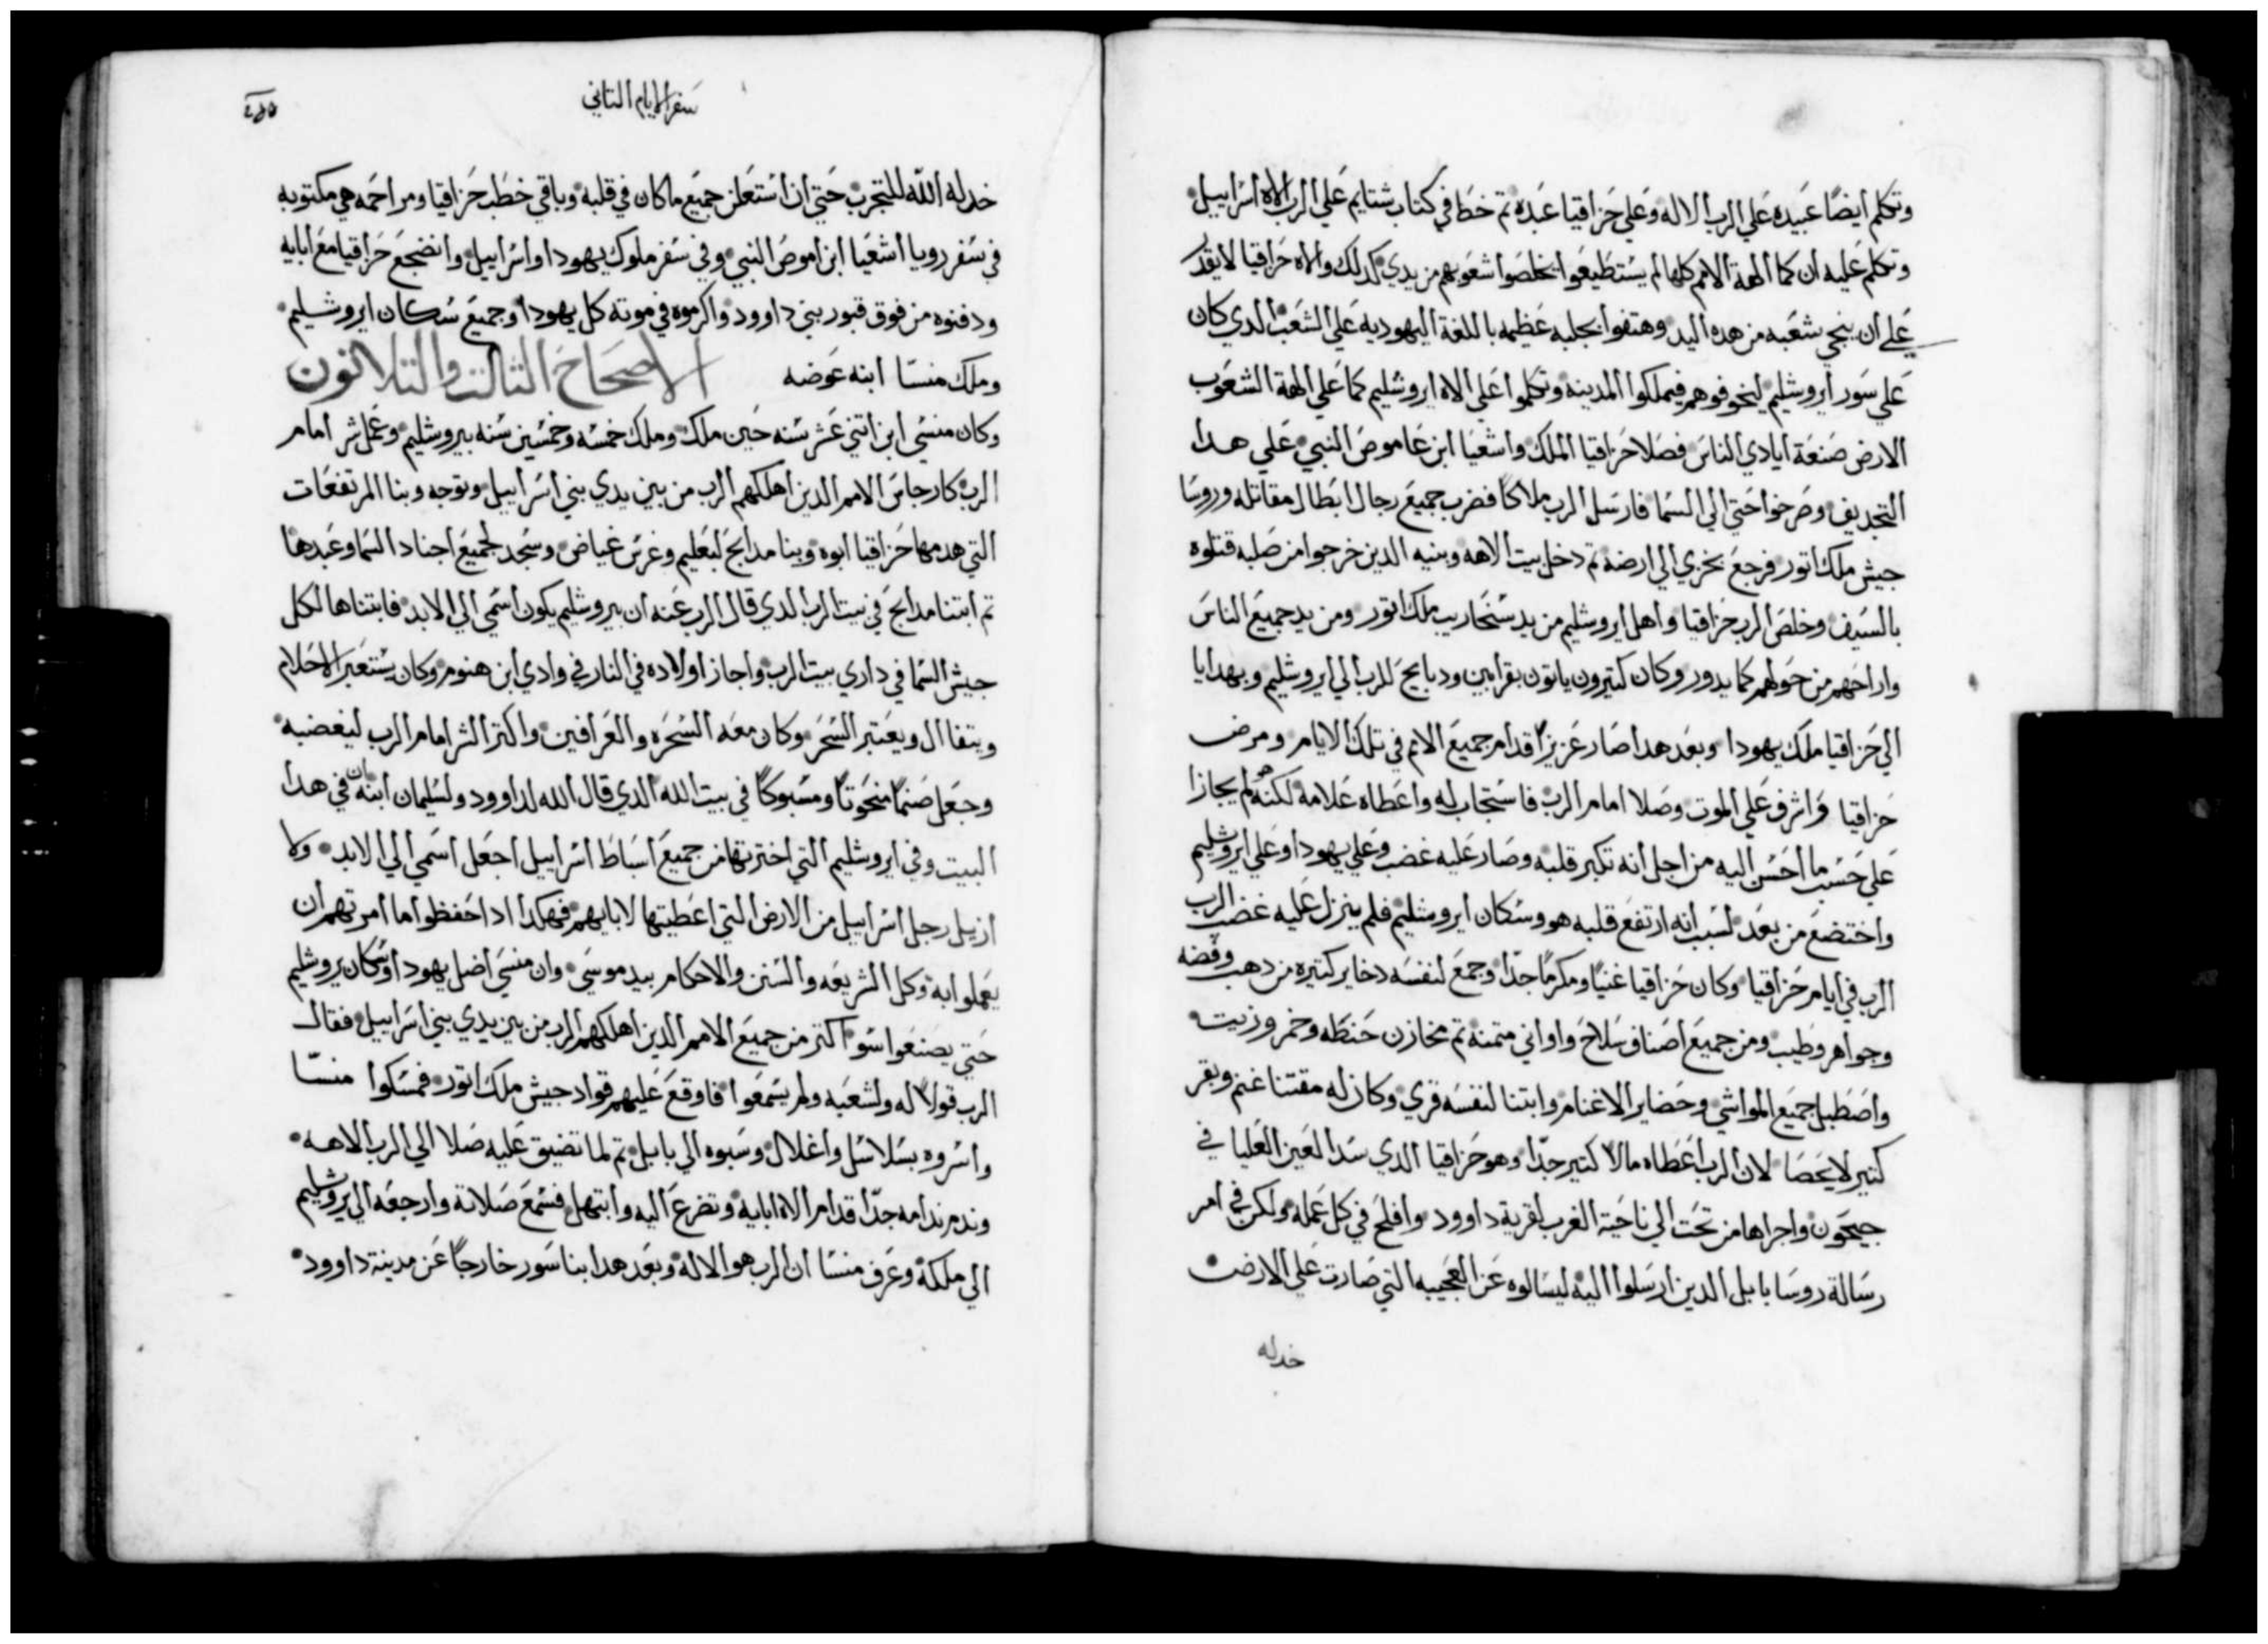 وتكلم ايضًا عبيده علي الرب الاله وعلي حزاقيا عبده تم خطا في كتاب شتايم علي الرب الاه اسراييل
وتكلم عليه ان كما الهة الامم كلها لم يستطيعوا يخلصوا شعوبهم من يدي كدلك والاه حزاقيا لا يقدر
علي ان ينجي شعبه من هده اليد وهتفوا بجلبه عظيمه باللغة اليهوديه علي الشعب الدي كان
علي سور ايروشليم ليخوفوهم فيملكوا المدينه وتكلموا علي الاه ايروشليم كما علي الهة الشعوب
الارض صنعة ايادي الناس فصلا حزاقيا الملك واشعيا ابن عاموص النبي علي هدا
التجديف وصرخوا حتي الي السما فارسل الرب ملاكًا فضرب جميع رجال ابطال مقاتله وروسا
جيش ملك اتور فرجع بخزي الي ارضه تم دخل بيت الاهه وبنيه الدين خرجوا من صلبه قتلوه
بالسيف وخلص الرب حزاقيا واهل ايروشليم من يد سنحاريب ملك اتور ومن يد جميع الناس
واراحهم من حولهم كما يدور وكان كتيرون ياتون بقرابين ودبايح للرب الي ايروشليم وبهدايا
الي حزاقيا ملك يهودا وبعد هدا صار عزيزًا قدام جميع الامم في تلك الايام ومرض
حزاقيا واشرف علي الموت وصلا امام الرب فاستجاب له واعطاه علامه لكنه لم يجازا
علي حسب ما احسن اليه من اجل انه تكبر قلبه وصار عليه غضب وعلي يهودا وعلي ايروشليم
واختضع من بعد لسبب انه ارتفع قلبه هو وسكان ايروشليم فلم ينزل عليه غضب الرب
الرب في ايام حزاقيا وكان حزاقيا غنيًا ومكرمًا جدًا وجمع لنفسه دخاير كتيره من دهب وفضه
وجواهر وطيب ومن جميع اصناف سلاح واواني متمنه تم مخازن حنطه وخمر وزيت
واصطبل جميع المواشي وحضاير الاغنام وابتنا لنفسه قري وكان له مقتنا غنم وبقر
كتير لا يحصا لان الرب اعطاه مالًا كتير جدًا وهو حزاقيا الدي سد العين العليا في
جيحون واجراها من تحت الي ناحية الغرب لقرية داوود وافلح في كل عمله ولكن في امر
رسالة روسا بابل الدين ارسلوا اليه ليسالوه عن العجيبه التي صارت علي الارض
خدله
سفر الايام التاني
خدله الله للتجرب حتي ان استعلن جميع ما كان في قلبه وباقي خطب حزاقيا ومراحمه هي مكتوبه
في سفر رويا اشعيا ابن اموص النبي وفي سفر ملوك يهودا واسراييل وانضجع حزاقيا مع ابايه
ودفنوه من فوق قبور بني داوود واكرموه في موته كل يهودا وجميع سكان ايروشليم
وملك منسا ابنه عوضه الاصحاح التالت والتلاتون
وكان منسي ابن اتني عشر سنه حين ملك وملك خمسه وخمسين سنه بيروشليم وعمل شر امام
الرب كارجاس الامم الدين اهلكهم الرب من بين يدي بني اسراييل وتوجه وبنا المرتفعات
التي هدمها حزاقيا ابوه وبنا مدابح لبعليم وغرس غياض وسجد لجميع اجناد السما وعبدها
تم ابتنا مدابح في بيت الرب الدي قال الرب عنه ان بيروشليم يكون اسمي الي الابد فابتناها لكل
جيش السما في داري بيت الرب واجاز اولاده في النار في وادي ابن هنوم وكان يستعبر الاحلام
ويتفاال ويعتبر السحر وكان معه السحره والعرافين واكتر الشر امام الرب ليغضبه
وجعل صنمًا منحوتًا ومسبوكًا في بيت الله الدي قال الله لداوود ولسليمان ابنه ان في هدا
البيت وفي ايروشليم التي اخترتها من جميع اسباط اسراييل اجعل اسمي الي الابد ولا
ازيل رجل اسراييل من الارض التي اعطيتها لابايهم فهكدا ادا حفظوا ما امرتهم ان
يعملوا به وكل الشريعه والسنن والاحكام بيد موسي وان منسي اضل يهودا وسكان يروشليم
حتي يصنعوا سو اكتر من جميع الامم الدين اهلكهم الرب من بين يدي بني اسراييل فقال
الرب قولًا له ولشعبه ولم يسمعوا فاوقع عليهم قواد جيش ملك اتور فمسكوا منسّا
واسروه بسلاسل واغلال وسبوه الي بابل تم لما تضيق عليه صلا الي الرب الاهه
وندم ندامه جدًا قدام الاه ابايه وتضرع اليه وابتهل فسمع صلاتة وارجعه الي يروشليم
الي ملكه وعرف منسا ان الرب هو الاله وبعد هدا بنا سور خارجًا عن مدينة داوود